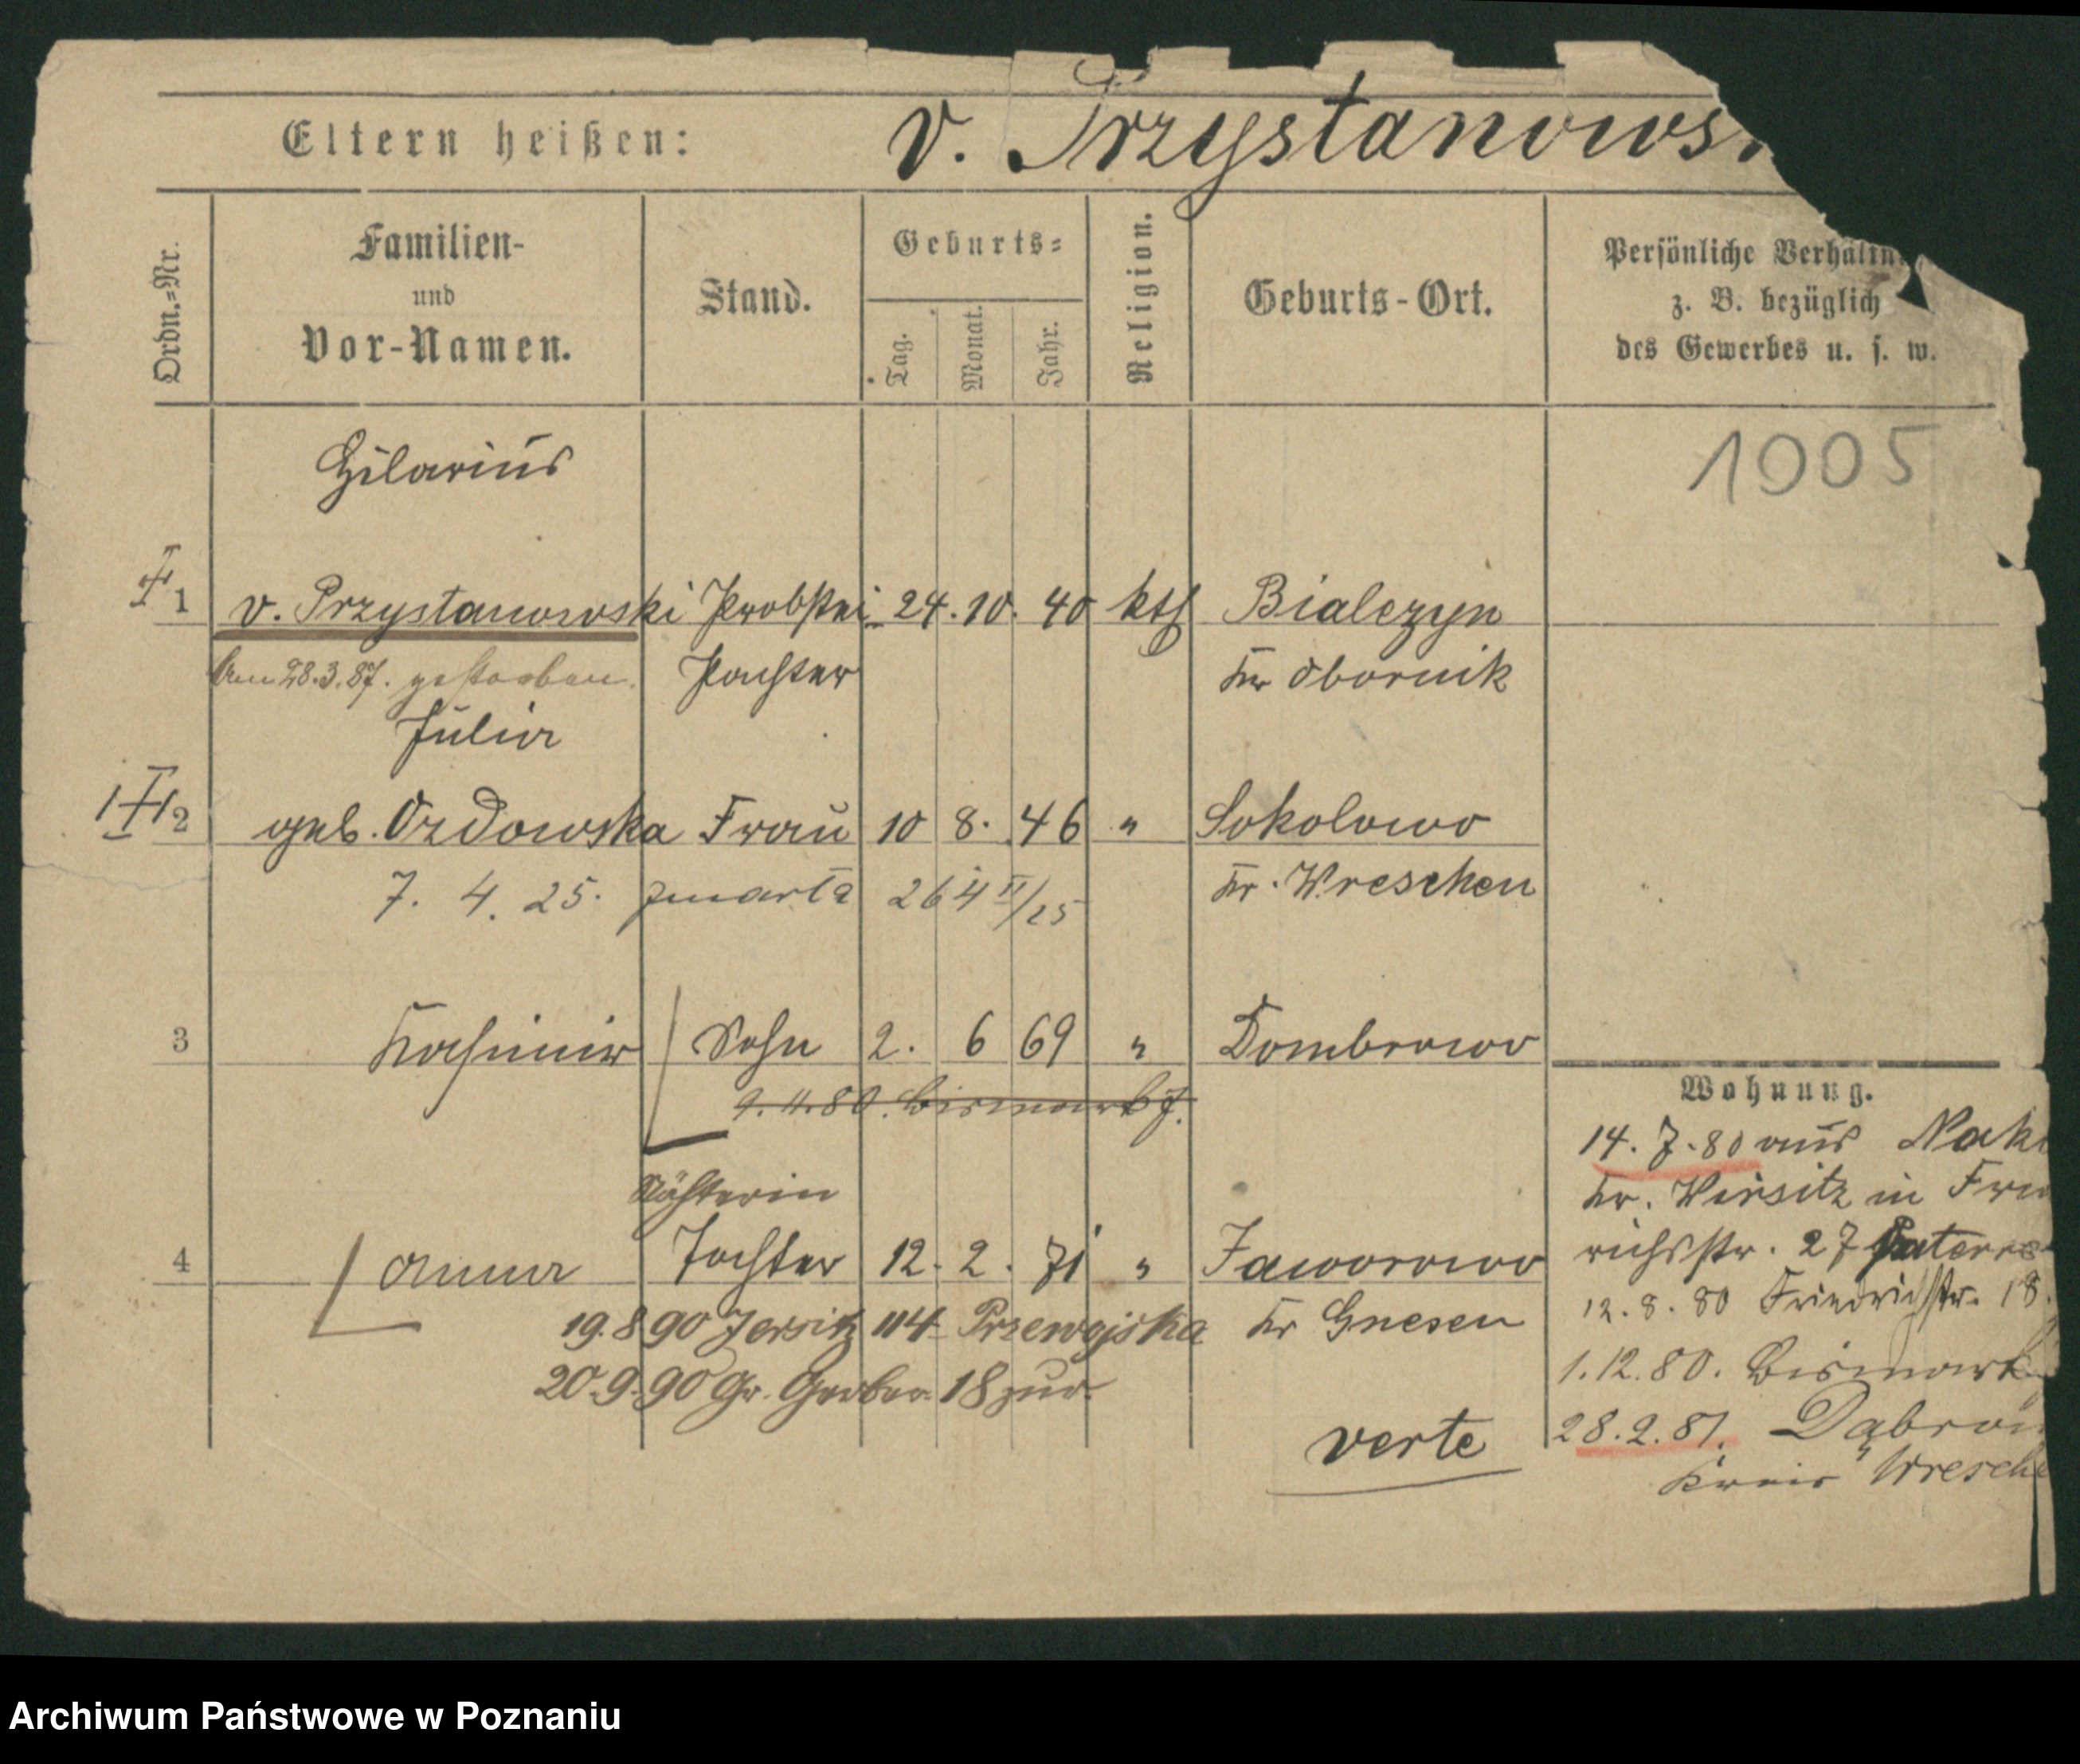 Eltern heißen: v. Przystanows
Ordn.=Nr.
Familien-
und
Vor-Namen.
Stand.
Geburts=
Tag.
Monat.
Jahr.
Religion.
Geburts-Ort.
Persönliche Verhältn
z. B. bezüglich
des Gewerbes u. s. w.
1005
Hilarius
1 v. Przystanowski Probstei- 24. 10. 40 kth Bialczyn
Am 28.3.87. gestorben. Pachter Kr Obornik
Julia
2 geb. Ozdowska Frau 10 8. 46 " Sokolowo
7. 4. 25. zmarła 264 II/25 Kr. Wreschen
3 Kasimir Sohn 2. 6 69 " Dombrowo
9. 11. 80. Bismarck
Nähterin
4 Anna Tochter 12. 2. 71 " Jaworowo
19.8 90 Jersitz 114 Kr Gnesen
20.9.90 Gr. Gerber 18 zur.
verte
Wohnung.
14. 7. 80 aus Nak
Kr. Wirsitz in
richsstr. 27 Paterre
12. 8. 80 Friedrichstr. 18.
1. 12. 80. Bismark
28. 2. 81. Dąbrow
Kreis Wresch
Archiwum Państwowe w Poznaniu